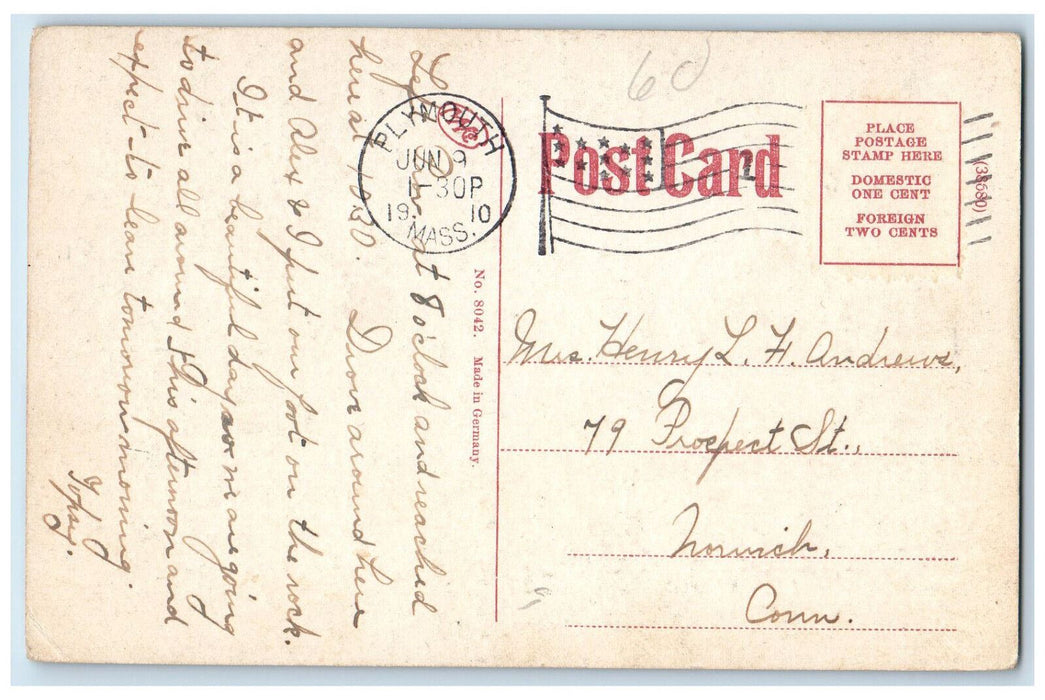 60
PLYMOUTH
JUN 9
1-30P
19 10
MASS.
Post Card
PLACE
POSTAGE
STAMP HERE
DOMESTIC
ONE CENT
FOREIGN
TWO CENTS
(38680)
No. 8042. Made in Germany.
Mrs. Henry L. H. Andrews,
79 Prospect St.,
Norwich,
Conn.
Left at 8 o'clock and reached
here at 10:30. Drove around here
and Alex & I put our foot on the rock.
It is a beautiful day so we are going
to drive all around this afternoon and
expect to leave tomorrow morning.